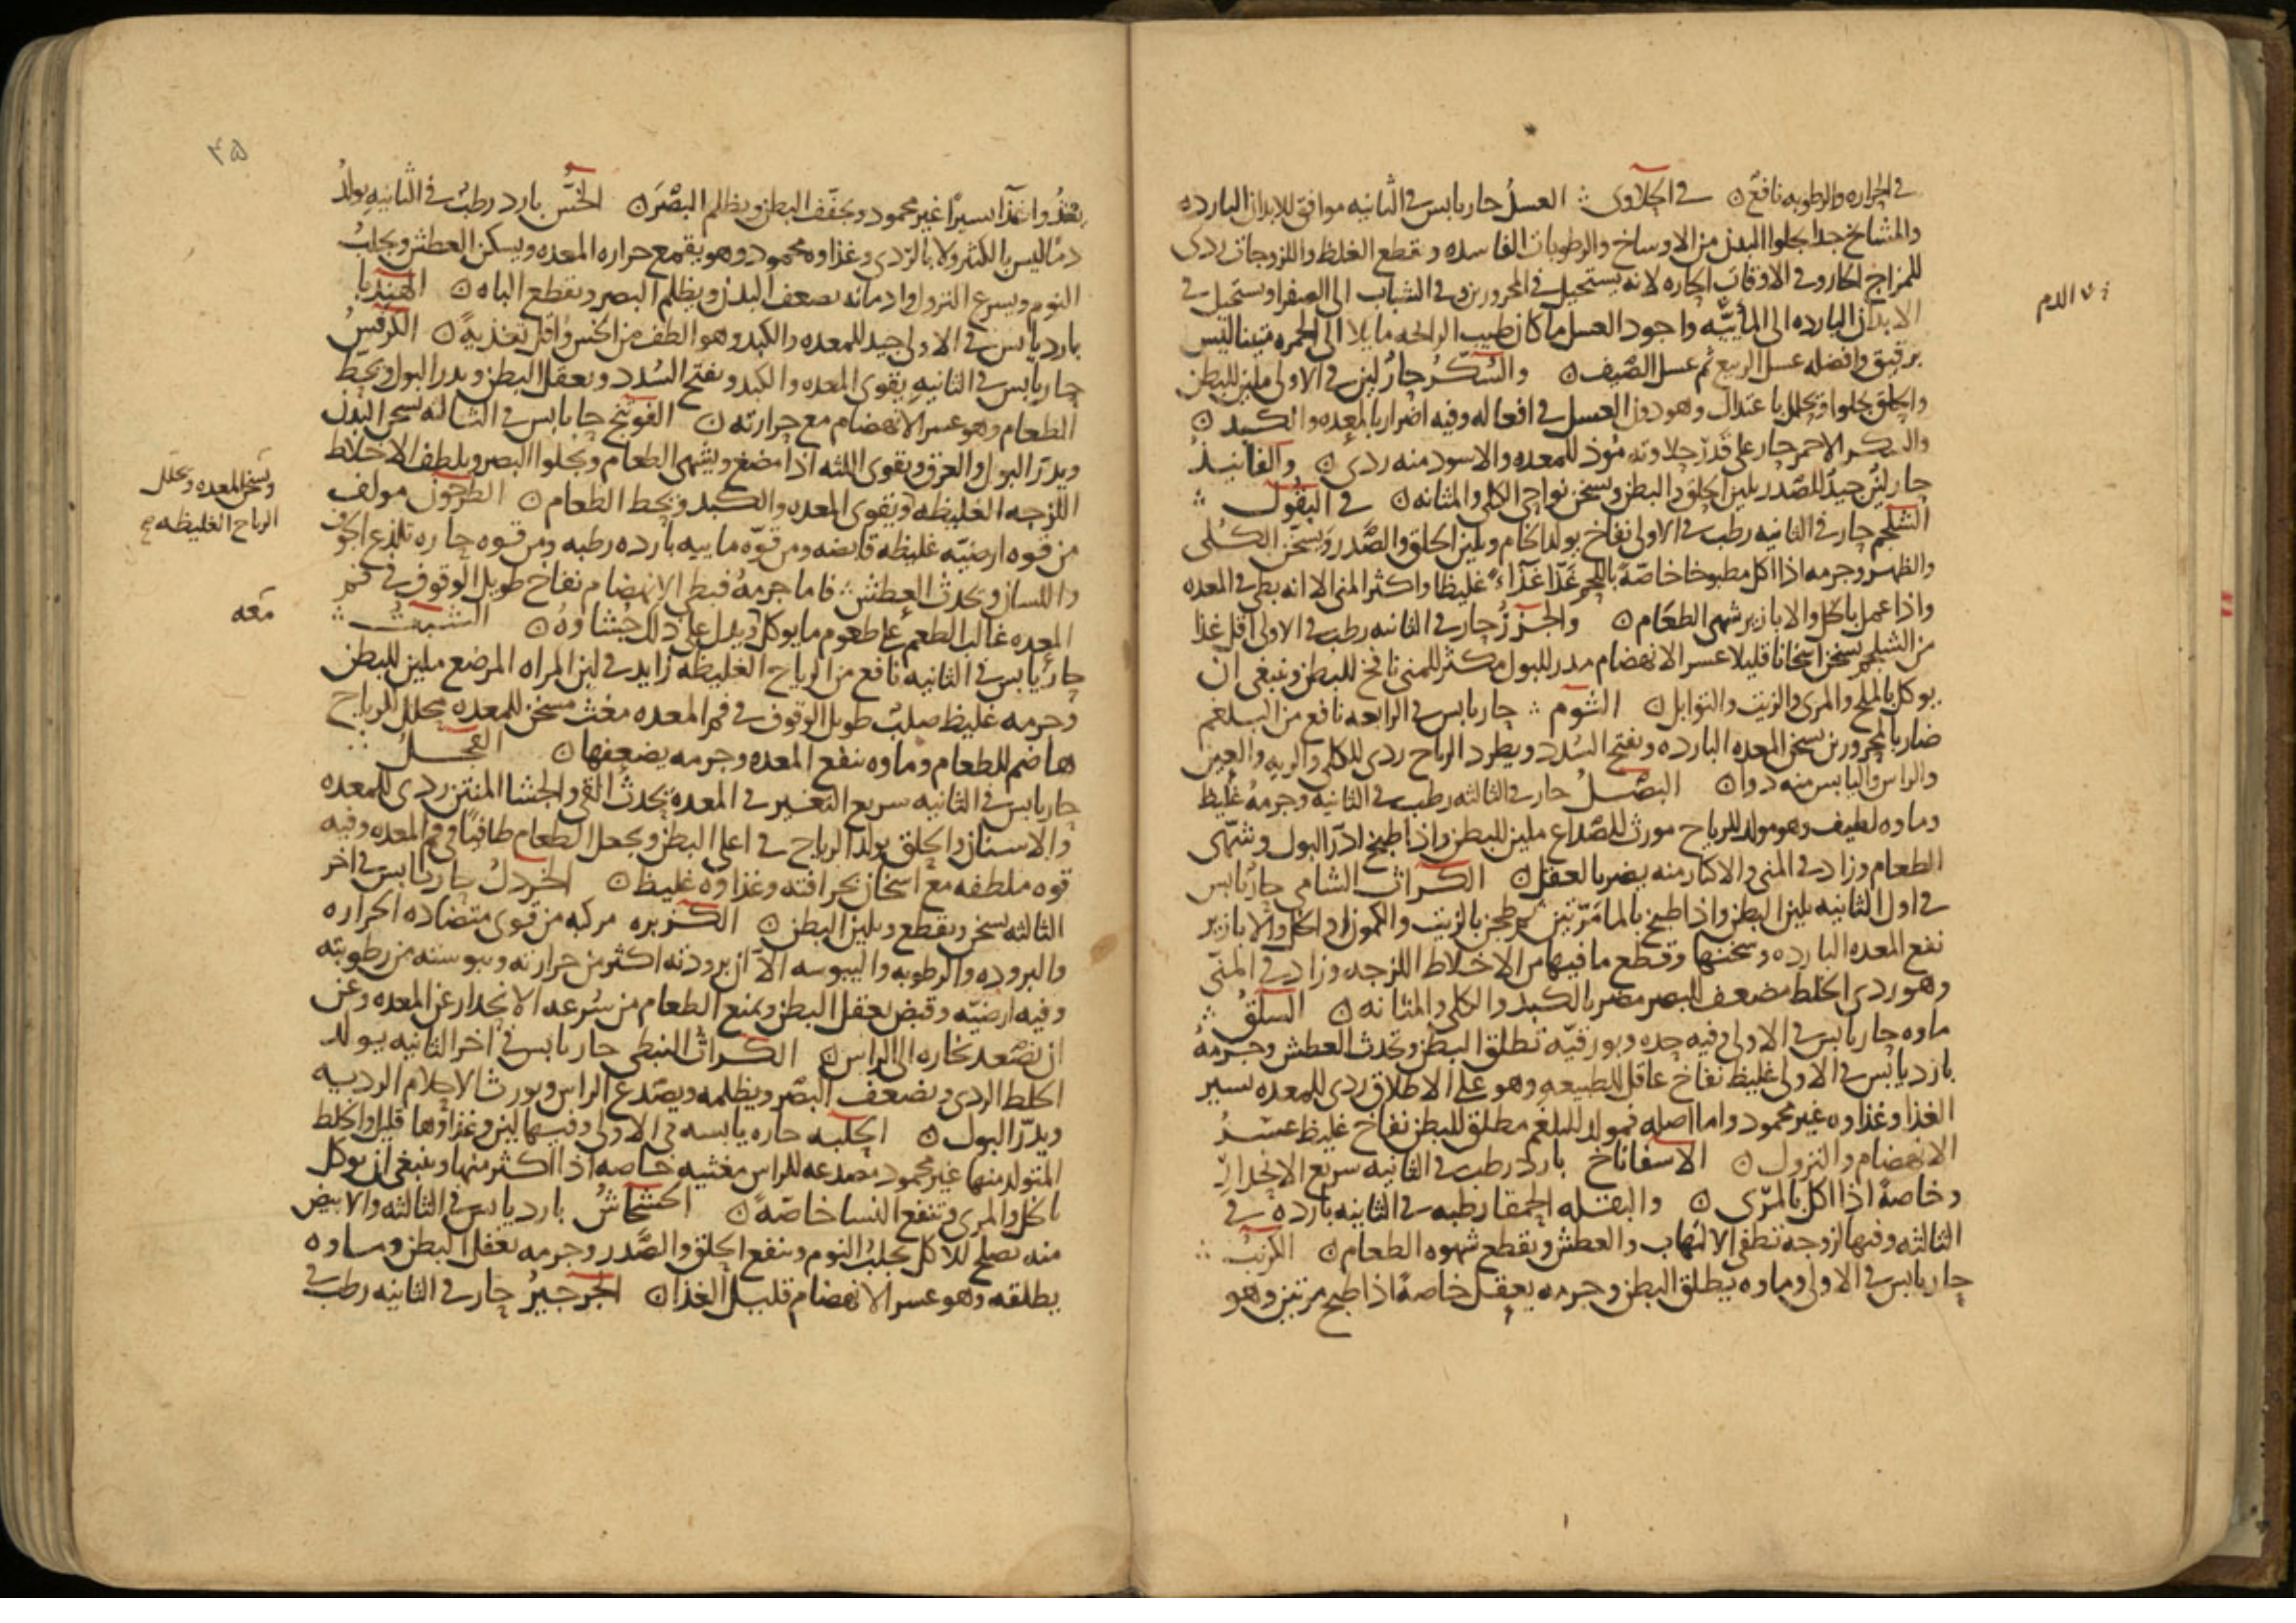 في الحراره والرطوبه نافع ۞ في الحلاوى ⁘ العسل حار يابس في الثانيه موافق للابدان البارده
والمشايخ جدا يجلوا البدن من الاوساخ والرطوبات الفاسده وقطع الغلظ واللزوجات ردى
للمزاج الحار وفي الاوقات الحاره لانه يستحيل في المحرورين وفي الشباب الى الصفرا ويستحيل في
الابدان البارده الى المائيّه واجود العسل ما كان طيب الرائحه مايلا الى الحمره متينا ليس
برقيق وافضله عسل الربيع ثم عسل الصّيف ۞ والسّكّر حار لين في الاولى ملين للبطن
والحلق يجلوا ويحلل باعتدال وهو دون العسل في افعاله وفيه اضرار بالمعده والكبد ۞
والسكر الاحمر حار على قدر حلاوته مؤذ للمعده والاسود منه ردى ۞ والفانيذ
حار لين جيد للصّدر يلين الحلق والبطن ويسخن نواحى الكلى والمثانه ۞ في البقول ⁘
الشلجم حار في الثانيه رطب في الاولى نفاخ يولد الخام ويلين الحلق والصّدر ويسخّن الكلى
والظهر وجرمه اذا اكل مطبوخا خاصّة باللحم غذا غذاء غليظا واكثر المنى الا انه بطى في المعده
واذا عمل بالخل والابازير شهى الطعام ۞ والجزر حار في الثانيه رطب في الاولى اقل غذا
من الشلجم يسخن اسخانا قليلا عسر الانهضام مدر للبول مكثر للمنى نافخ للبطن وينبغى ان
يوكل بالملح والمرى والزيت والتوابل ۞ الثوم ⁘ حار يابس في الرابعه نافع من البلغم
ضار بالمحرورين يسخن المعده البارده ويفتح السدد ويطرد الرياح ردى للكلى والريه والعين
والراس واليابس منه دوا ۞ البصل حار في الثالثه رطب في الثانيه وجرمه غليظ
وماوه لطيف وهو مولد للرياح مورث للصّداع ملين للبطن واذا طبخ ادرّ البول وشهّى
الطعام وزاد في المنى والاكثار منه يضر بالعقل ۞ الكراث الشامى حار يابس
في اول الثانيه يلين البطن واذا طبخ بالماء مرّتين ثم طجن بالزيت والكمون او الخل والابازير
نفع المعده البارده وسخنها وقطع ما فيها من الاخلاط اللزجه وزاد في المنىّ
وهو ردى الخلط مضعف للبصر مضر بالكبد والكلى والمثانه ۞ السلق ⁘
ماوه حار يابس في الاولى وفيه حده وبورقيّه تطلق البطن وتحدث العطش وجرمه
بارد يابس في الاولى غليظ نفاخ عاقل للطبيعه وهو على الاطلاق ردى للمعده يسير
الغذا وغذاوه غير محمود واما اصله فمولد للبلغم مطلق للبطن نفاخ غليظ عسر
الانهضام والنزول ۞ الاسفاناخ بارد رطب في الثانيه سريع الانحدار
وخاصة اذا اكل بالمرّى ۞ والبقله الحمقا رطبه في الثانيه بارده في
الثالثه وفيها لزوجه تطفى الالتهاب والعطش وتقطع شهوه الطعام ۞ الكرنب ⁘
حار يابس في الاولى وماوه يطلق البطن وجرمه يعقل خاصة اذا طبخ مرتين وهو
الدم
٤٥
يغذوا غذآ يسيرا غير محمود ويجفف البطن ويظلم البصر ۞ الخسّ بارد رطب في الثانيه يولد
دما ليس بالكثير ولا بالردى وغذاوه محمود وهو يقمع حراره المعده ويسكن العطش ويجلب
النوم ويسرع النزول وادمانه يضعف البدن ويظلم البصر ويقطع الباه ۞ الهندبا
بارد يابس في الاولى جيد للمعده والكبد وهو الطف من الخس واقل تغذيه ۞ الكرفس
حار يابس في الثانيه يقوى المعده والكبد ويفتح السدد ويعقل البطن ويدر البول ويحط
الطعام وهو عسر الانهضام مع حرارته ۞ الفوتنج حار يابس في الثالثه يسخن البدن
ويدرّ البول والعرق ويقوى اللثه اذا مضغ ويشهى الطعام ويجلوا البصر ويلطف الاخلاط
اللزجه الغليظه ويقوى المعده والكبد ويحط الطعام ۞ الطرخون مولف
من قوه ارضيّه غليظه قابضه ومن قوّه ماييه بارده رطبه ومن قوه حاره تلذع الجوف
واللسان ويحدث العطش ⁘ فاما جرمه فبطى الانهضام نفاخ طويل الوقوف في فم
المعده غالب الطعم على طعوم ما يوكل ويدل على ذلك جشاوه ۞ الشبث ⁘
حار يابس في الثانيه نافع من الرياح الغليظه زايد في لبن المراه المرضع ملين للبطن
وجرمه غليظ صلب طويل الوقوف في فم المعده مغث مسخن للمعده محلل للرياح
هاضم للطعام وماوه ينفع المعده وجرمه يضعفها ۞ الفجل
حار يابس في الثانيه سريع التغيير في المعده يحدث القى والجشا المنتن ردى للمعده
والاسنان والحلق يولد الرياح في اعلى البطن ويجعل الطعام طافيا في فم المعده وفيه
قوه ملطفه مع اسخان بحرافته وغذاوه غليظ ۞ الخردل حار يابس في اخر
الثالثه يسخن ويقطع ويلين البطن ۞ الكزبره مركبه من قوى متضاده الحراره
والبروده والرطوبه واليبوسه الا ان برودته اكثر من حرارته ويبوسته من رطوبته
وفيه ارضيّه وقبض يعقل البطن ويمنع الطعام من سرعه الانحدار عن المعده وعن
ان يصّعد بخاره الى الراس ۞ الكراث النبطى حار يابس في اخر الثانيه يولد
الخلط الردى ويضعف البصر ويظلمه ويصدع الراس ويورث الاحلام الرديه
ويدرّ البول ۞ الحلبه حاره يابسه في الاولى وفيها لين وغذاوها قليل والخلط
المتولد منها غير محمود مصدعه للراس مغثيه خاصه اذا اكثر منها وينبغى ان يوكل
بالخل والمرى وتنفع النسا خاصّة ۞ الخشخاش بارد يابس في الثالثه والابيض
منه يصلح للاكل يجلب النوم وينفع الحلق والصّدر وجرمه يعقل البطن وماوه
يطلقه وهو عسر الانهضام قليل الغذا ۞ الجرجير حار في الثانيه رطب
ويسخن المعده ويحلل
الرياح الغليظه صح
معه